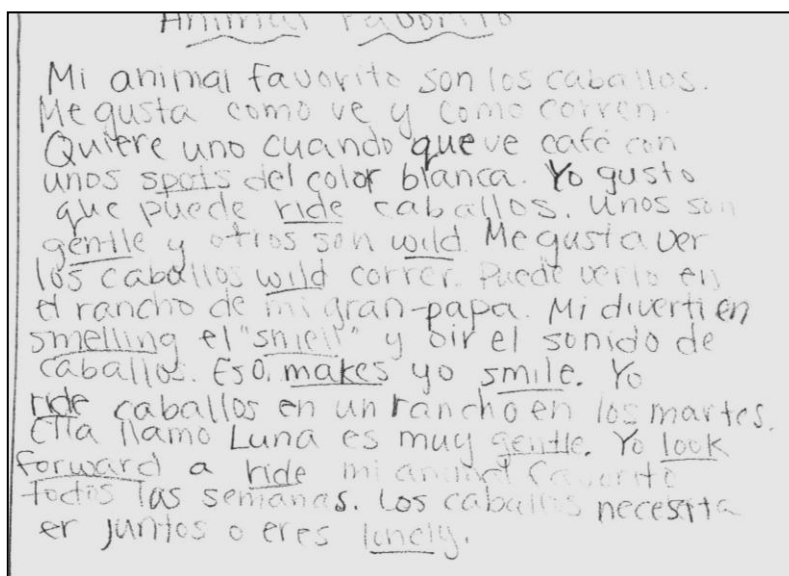 Animal Favorito
Mi animal favorito son los caballos.
Me gusta como ve y como corren.
Quiere uno cuando que ve café con
unos spots del color blanca. Yo gusto
que puede ride caballos. Unos son
gentle y otros son wild. Me gusta ver
los caballos wild correr. Puede verlo en
el rancho de mi gran-papa. Mi diverti en
smelling el "smell" y oir el sonido de
caballos. Eso, makes yo smile. Yo
ride caballos en un rancho en los martes.
Ella llamo Luna es muy gentle. Yo look
forward a ride mi animal favorito
todos las semanas. Los caballos necesita
er juntos o eres lonely.